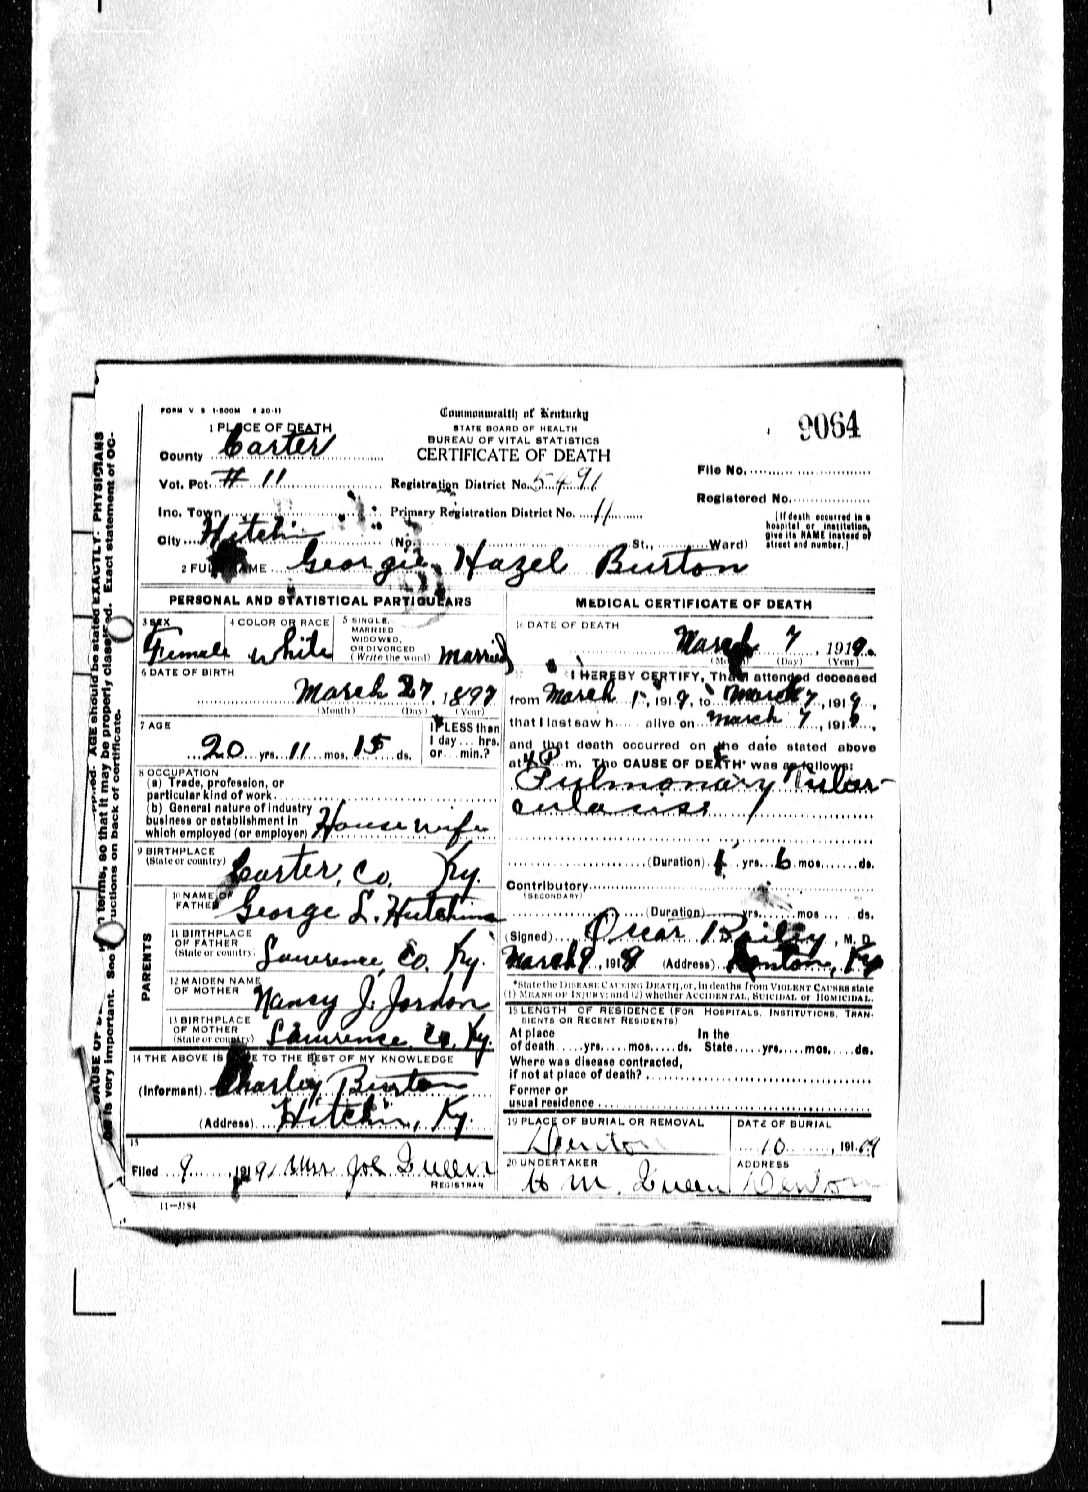 FORM V S 1-500M 6 20-11
Commonwealth of Kentucky
STATE BOARD OF HEALTH
BUREAU OF VITAL STATISTICS
CERTIFICATE OF DEATH
9064
1 PLACE OF DEATH
County Carter
Vot. Pct. # 11
Registration District No. 5491
File No.
Inc. Town
Primary Registration District No. 11
Registered No.
City Hitchin
(No. St., Ward)
[If death occurred in a hospital or institution, give its NAME instead of street and number.]
2 FULL NAME Georgie Hazel Burton
PERSONAL AND STATISTICAL PARTICULARS
3 SEX
Female
4 COLOR OR RACE
White
5 SINGLE, MARRIED WIDOWED, OR DIVORCED (Write the word)
married
6 DATE OF BIRTH
March 27, 1897
(Month) (Day) (Year)
7 AGE
20 yrs. 11 mos. 15 ds.
If LESS than 1 day... hrs. or... min.?
8 OCCUPATION
(a) Trade, profession, or
particular kind of work
(b) General nature of industry
business or establishment in
which employed (or employer) House wife
9 BIRTHPLACE
(State or country) Carter, Co, Ky.
PARENTS
10 NAME OF FATHER George L. Hutchins
11 BIRTHPLACE OF FATHER (State or country) Lawrence, Co. Ky.
12 MAIDEN NAME OF MOTHER Nancy J. Jordon
13 BIRTHPLACE OF MOTHER (State or country) Lawrence Co, Ky.
14 THE ABOVE IS TO THE BEST OF MY KNOWLEDGE
(Informant) Charley Burton
(Address) Hitchin, Ky.
15
Filed 9, 191 Mrs Joe Queen
REGISTRAR
11-3184
MEDICAL CERTIFICATE OF DEATH
16 DATE OF DEATH
March 7, 191
(Month) (Day) (Year)
I HEREBY CERTIFY, That I attended deceased
from March 1, 1919, to March 7, 1919,
that I last saw h alive on March 7, 191
and that death occurred on the date stated above
at P m. The CAUSE OF DEATH* was as follows:
Pulmonary Tuber-
culauss
(Duration) 1 yrs. 6 mos. ds.
Contributory
(SECONDARY)
(Duration) yrs. mos ds.
(Signed) Oscar Bailey, M. D.
March 9, 191 (Address) Denton, Ky
*State the DISEASE CAUSING DEATH, or, in deaths from VIOLENT CAUSES state
(1) MEANS OF INJURY; and (2) whether ACCIDENTAL, SUICIDAL or HOMICIDAL.
18 LENGTH OF RESIDENCE (FOR HOSPITALS, INSTITUTIONS, TRANSIENTS OR RECENT RESIDENTS)
At place In the
of death yrs. mos. ds. State yrs. mos. ds.
Where was disease contracted,
if not at place of death?
Former or
usual residence
19 PLACE OF BURIAL OR REMOVAL
Denton
DATE OF BURIAL
10, 191
20 UNDERTAKER
H M. Queen
ADDRESS
Denton
AGE should be stated EXACTLY. PHYSICIANS
terms, so that it may be properly classified. Exact statement of OC-
is very important. See instructions on back of certificate.